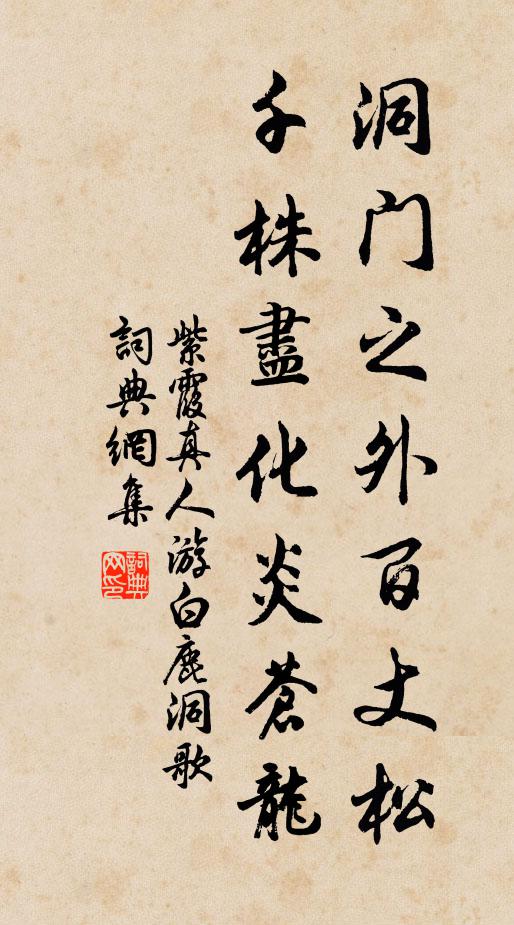 洞门之外百丈松
千株盡化炎蒼龍
紫霞真人游白鹿洞歌
詞典網集
詞典网印